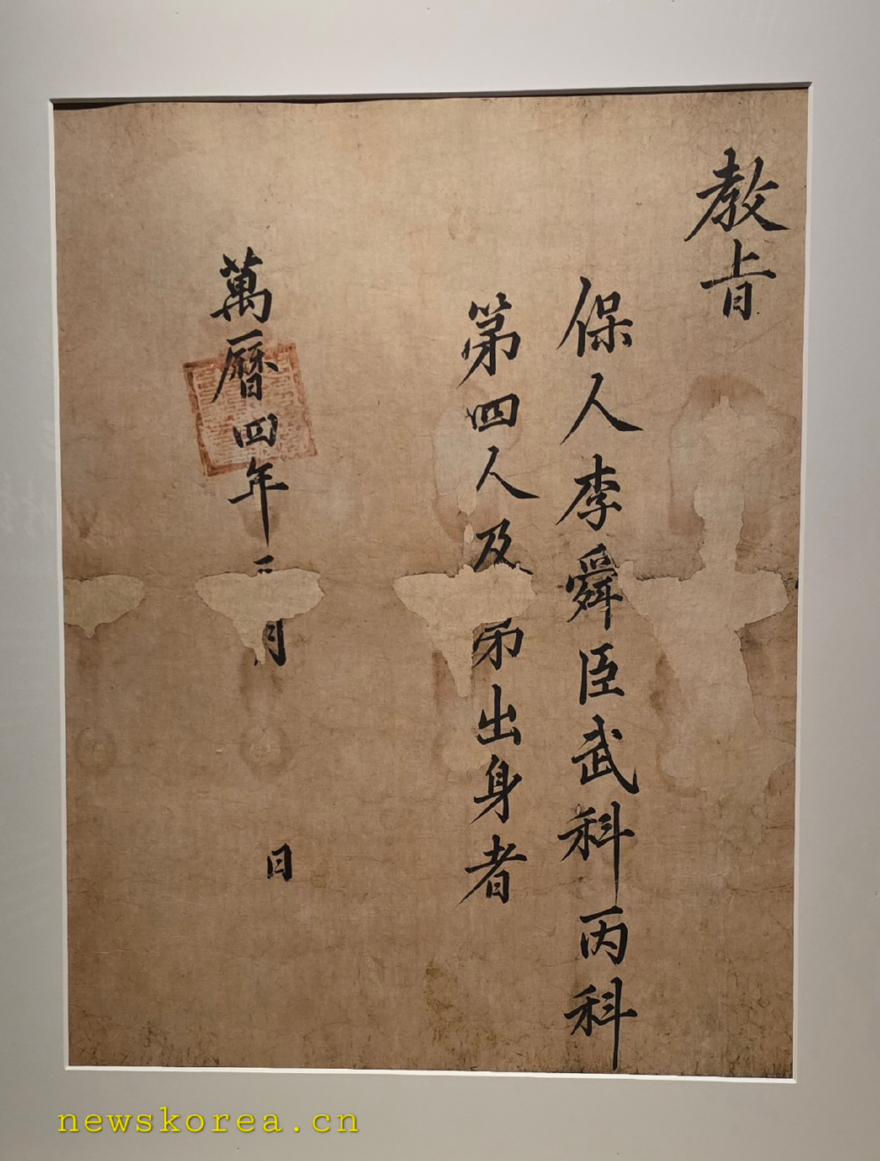 教旨
保人李舜臣武科丙科
第四人及第出身者
萬曆四年 月 日
newskorea.cn